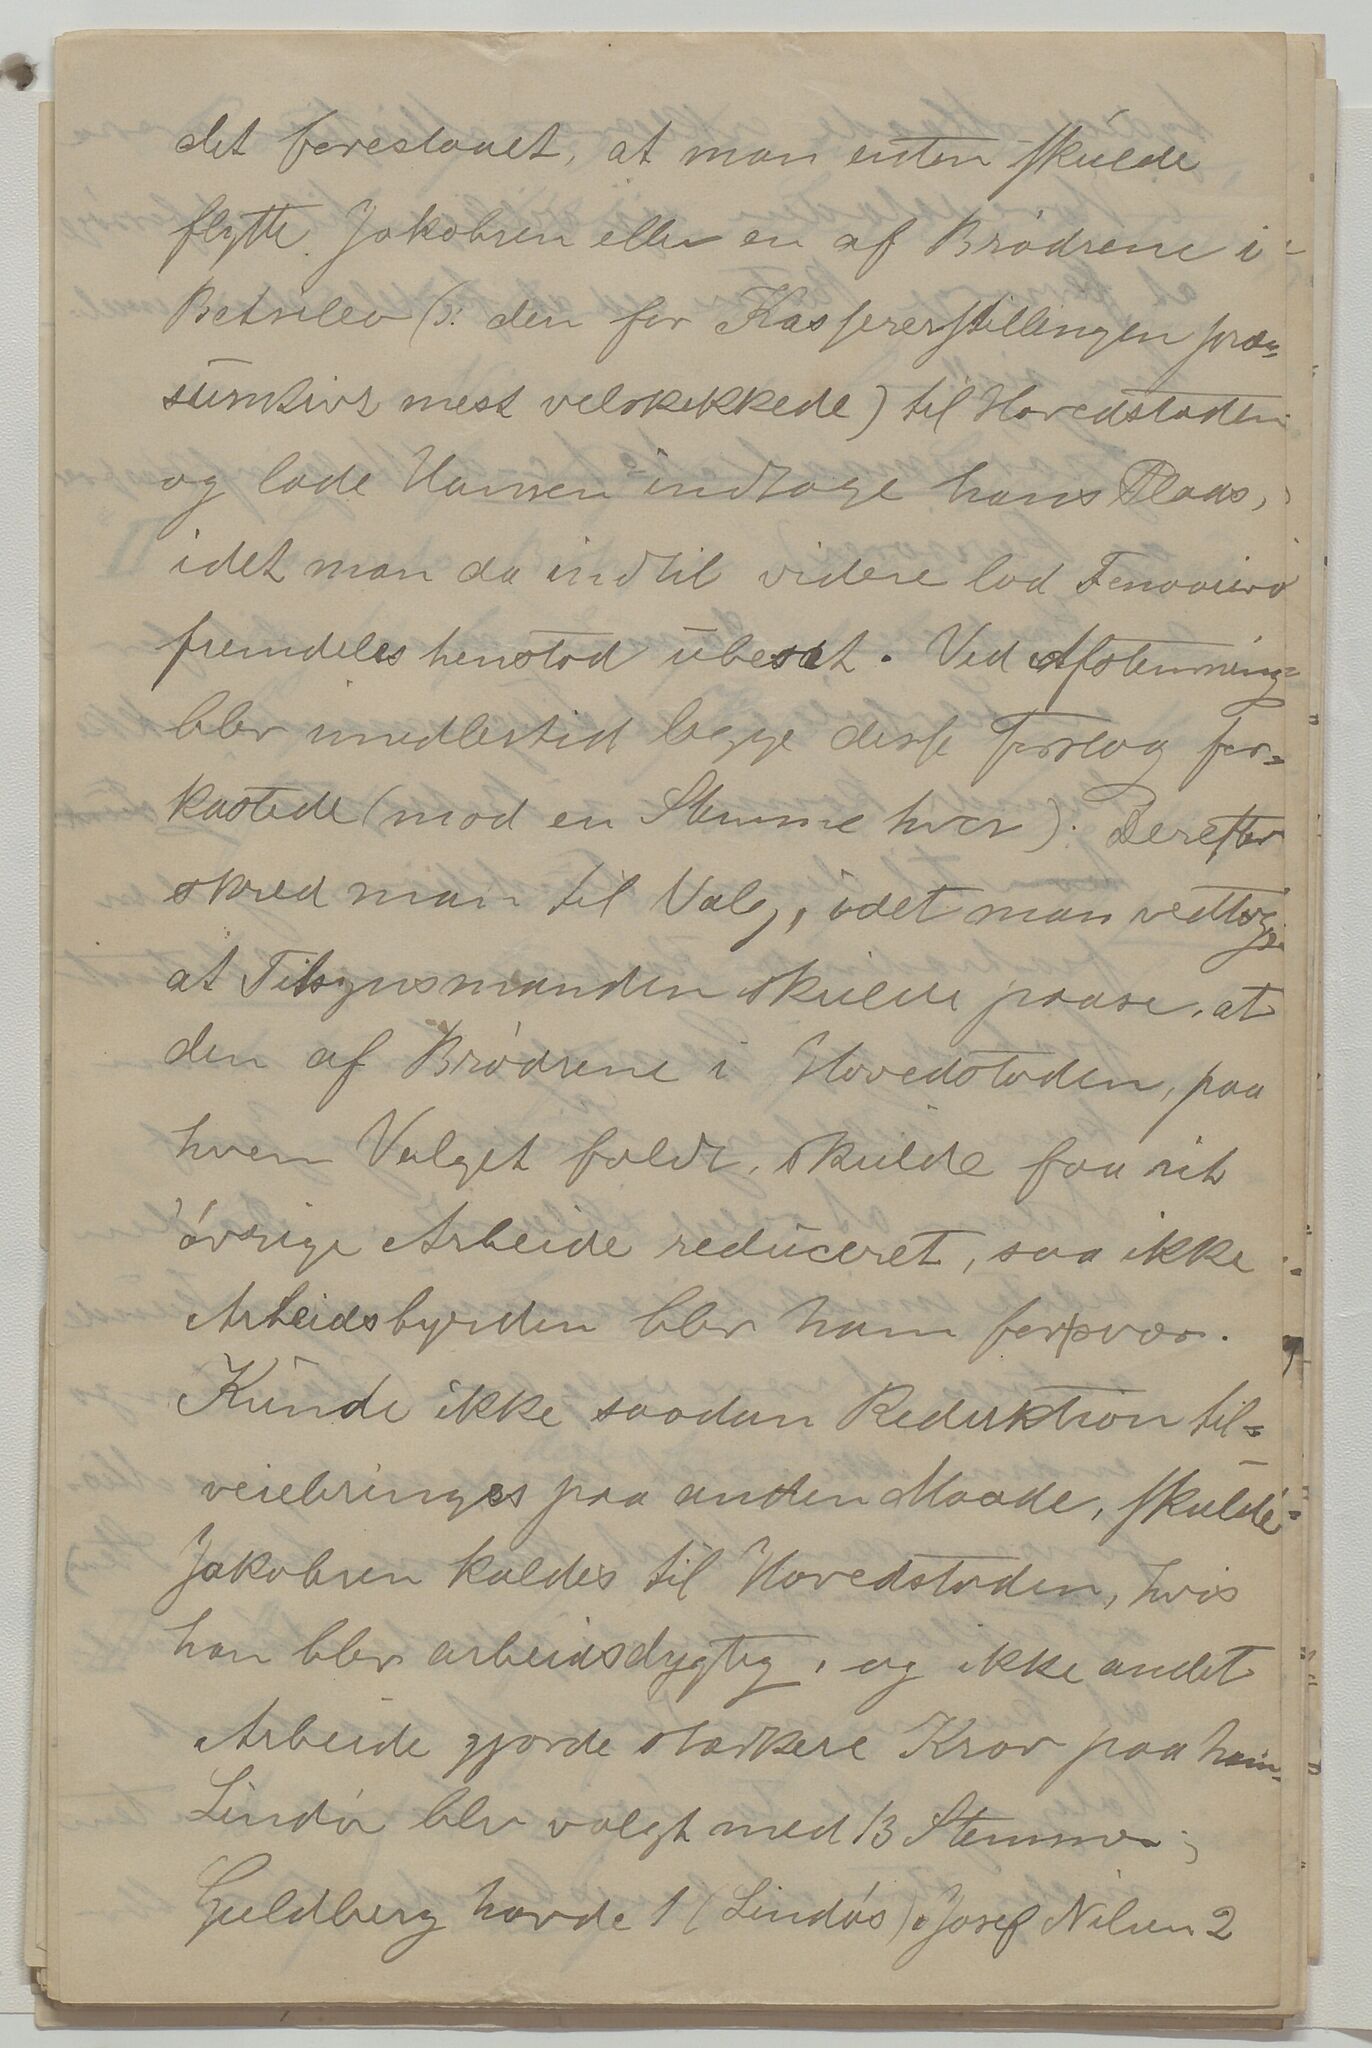 det foreslaaet, at man enten skulde
flytte Jakobsen eller en af Brødrene i
Betsileo (ɔ: den for Kassererstillingen præ-
sumtivt mest velskikkede) til Hovedstaden
og lade Hansen indtage hans Plads,
idet man da indtil videre lod Fenoarivo
fremdeles henstod ubesat. Ved Afstemning
blev imedlertid begge disse Forslag for-
kastede (mod en Stemme hver). Derefter
skred man til Valg, idet man vedtog,
at Tilsynsmanden skulde paase, at
den af Brødrene i Hovedstaden, paa
hvem Valget faldt, skulde faa sit
øvrige Arbeide reduceret, saa ikke
Arbeidsbyrden blev ham forsvær.
Kunde ikke saadan Reduktion til-
veiebringes paa anden Maade, skulde
Jakobsen kaldes til Hovedstaden, hvis
han blev arbeidsdygtig, og ikke andet
Arbeide gjorde stærkere Krav paa ham.
Lindø blev valgt med 13 Stemmer;
Guldberg havde 1 (Lindøs). Josef Nilsen 2